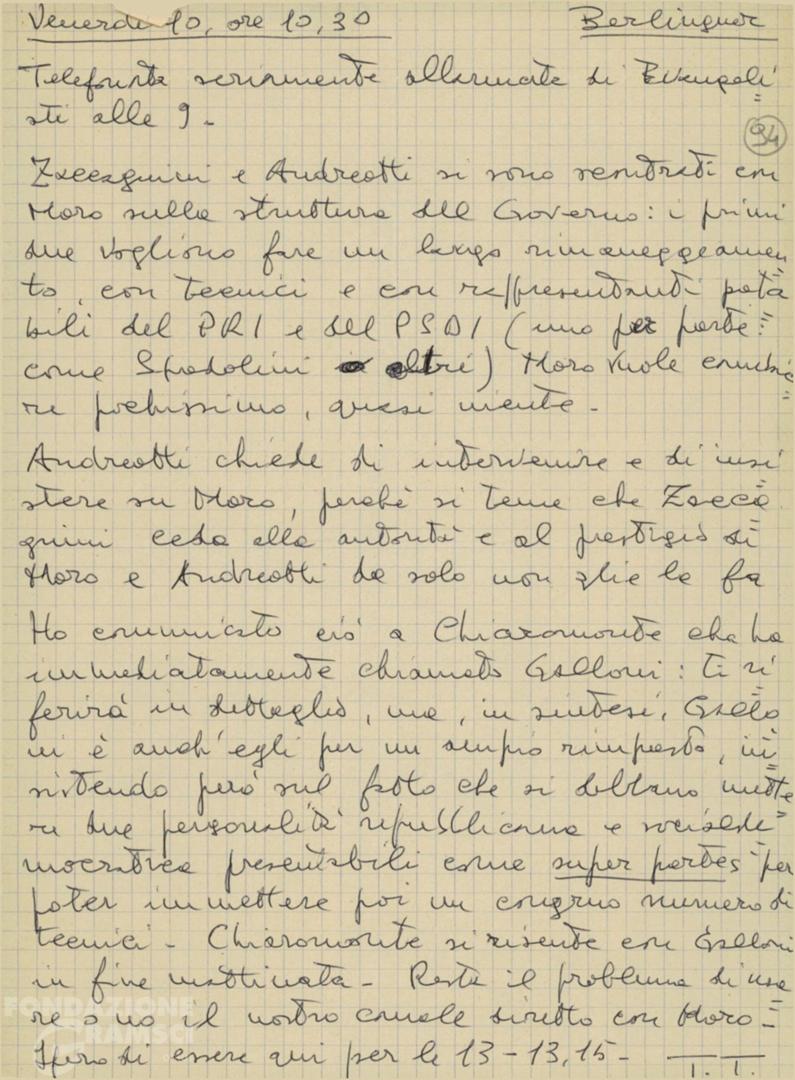 Venerdì 10, ore 10,30 Berlinguer
Telefonata seriamente allarmata di Evangeli=
sti alle 9 -
94
Zaccagnini e Andreotti si sono scontrati con
Moro sulla struttura del Governo: i primi
due vogliono fare un largo rimaneggiamen=
to, con tecnici e con rappresentanti pota=
bili del PRI e del PSDI (uno per parte:
come Spadolini o altri) Moro vuole cambia=
re pochissimo, quasi niente -
Andreotti chiede di intervenire e di insi=
stere su Moro, perché si teme che Zacca=
gnini ceda alla autorità e al prestigio di
Moro e Andreotti da solo non glie la fa
Ho comunicato ciò a Chiaromonte che ha
immediatamente chiamato Galloni: ti ri=
ferirà in dettaglio, ma, in sintesi, Gallo=
ni è anch'egli per un ampio rimpasto, in=
sistendo però sul fatto che si debbano mette=
re due personalità repubblicana e socialde=
mocratica presentabili come super partes per
poter immettere poi un congruo numero di
tecnici - Chiaromonte si risente con Galloni
in fine mattinata - Resta il problema di usa=
re o no il nostro canale diretto con Moro -
Spero di essere qui per le 13-13,15 - T.T.
FONDAZIONE
GRAMSCI